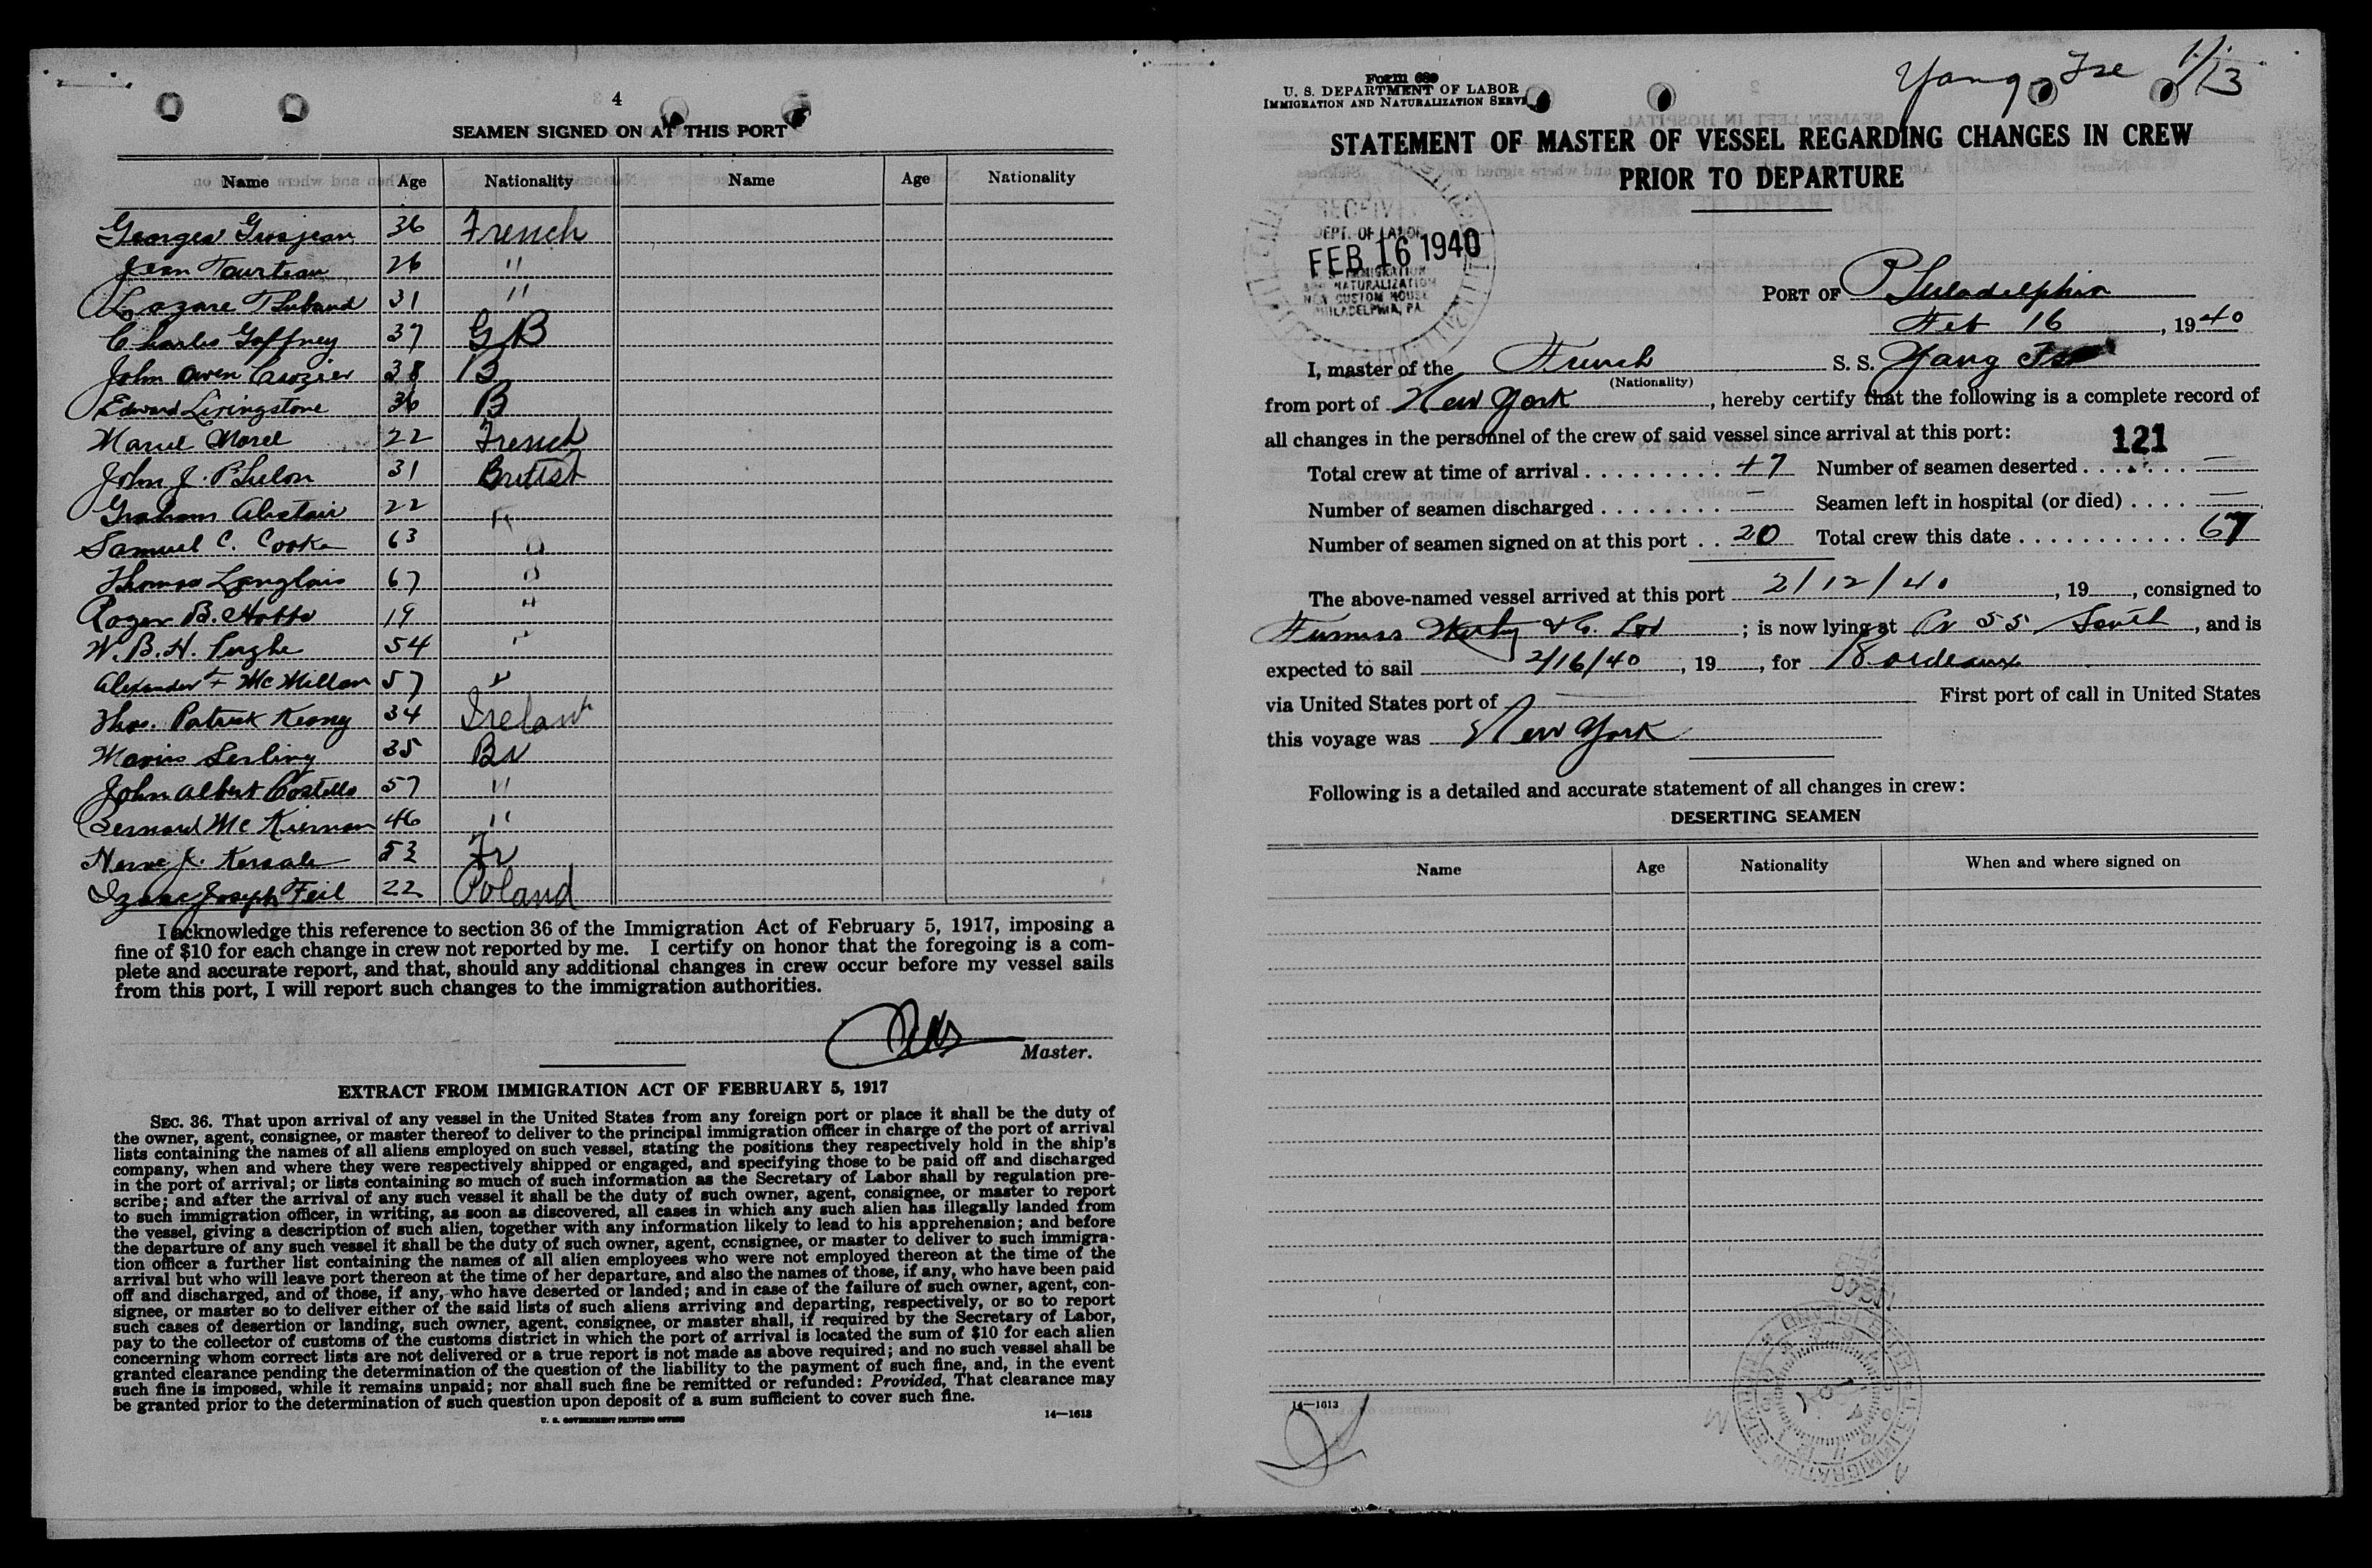 4
SEAMEN SIGNED ON AT THIS PORT
Name Age Nationality Name Age Nationality
Georges Grosjean 36 French
Jean Tourteau 26 "
Lazare 31 "
Charles Gaffney 37 G B
John Owen Crozier 38 B
Edward Livingstone 36 B
Morel 22 French
John J. 31 British
Graham Alistair 22 "
Samuel C. Cooke 63 "
Thomas Langlais 67 "
Roger B. Hobbs 19 "
W. B. H. 54 "
Alexander F McMillan 57 "
Thos. Patrick 34 Ireland
35 Br
John Albert Costello 57 "
Bernard McKiernan 46 "
Herve J. 53 Fr
Joseph Feil 22 Poland
I acknowledge this reference to section 36 of the Immigration Act of February 5, 1917, imposing a
fine of $10 for each change in crew not reported by me. I certify on honor that the foregoing is a com-
plete and accurate report, and that, should any additional changes in crew occur before my vessel sails
from this port, I will report such changes to the immigration authorities.
Master.
EXTRACT FROM IMMIGRATION ACT OF FEBRUARY 5, 1917
SEC. 36. That upon arrival of any vessel in the United States from any foreign port or place it shall be the duty of
the owner, agent, consignee, or master thereof to deliver to the principal immigration officer in charge of the port of arrival
lists containing the names of all aliens employed on such vessel, stating the positions they respectively hold in the ship's
company, when and where they were respectively shipped or engaged, and specifying those to be paid off and discharged
in the port of arrival; or lists containing so much of such information as the Secretary of Labor shall by regulation pre-
scribe; and after the arrival of any such vessel it shall be the duty of such owner, agent, consignee, or master to report
to such immigration officer, in writing, as soon as discovered, all cases in which any such alien has illegally landed from
the vessel, giving a description of such alien, together with any information likely to lead to his apprehension; and before
the departure of any such vessel it shall be the duty of such owner, agent, consignee, or master to deliver to such immigra-
tion officer a further list containing the names of all alien employees who were not employed thereon at the time of the
arrival but who will leave port thereon at the time of her departure, and also the names of those, if any, who have been paid
off and discharged, and of those, if any, who have deserted or landed; and in case of the failure of such owner, agent, con-
signee, or master so to deliver either of the said lists of such aliens arriving and departing, respectively, or so to report
such cases of desertion or landing, such owner, agent, consignee, or master shall, if required by the Secretary of Labor,
pay to the collector of customs of the customs district in which the port of arrival is located the sum of $10 for each alien
concerning whom correct lists are not delivered or a true report is not made as above required; and no such vessel shall be
granted clearance pending the determination of the question of the liability to the payment of such fine, and, in the event
such fine is imposed, while it remains unpaid; nor shall such fine be remitted or refunded: Provided, That clearance may
be granted prior to the determination of such question upon deposit of a sum sufficient to cover such fine.
U. S. GOVERNMENT PRINTING OFFICE 14—1613
Yang Tse 1/13
Form 689
U. S. DEPARTMENT OF LABOR
IMMIGRATION AND NATURALIZATION SERVICE
STATEMENT OF MASTER OF VESSEL REGARDING CHANGES IN CREW
PRIOR TO DEPARTURE
RECEIVED
DEPT. OF LABOR
FEB 16 1940
IMMIGRATION
AND NATURALIZATION
NEW CUSTOM HOUSE
PHILADELPHIA, PA.
PORT OF Philadelphia
Feb 16, 1940
I, master of the French S. S. Yang Tse
(Nationality)
from port of New York, hereby certify that the following is a complete record of
all changes in the personnel of the crew of said vessel since arrival at this port:
121
Total crew at time of arrival 47 Number of seamen deserted —
Number of seamen discharged — Seamen left in hospital (or died) —
Number of seamen signed on at this port 20 Total crew this date 67
The above-named vessel arrived at this port 2/12/40, 19, consigned to
Furness Withy & Co. Ltd; is now lying at Cr 55 South, and is
expected to sail 2/16/40, 19, for Bordeaux
via United States port of — First port of call in United States
this voyage was New York
Following is a detailed and accurate statement of all changes in crew:
DESERTING SEAMEN
Name Age Nationality When and where signed on
14—1613